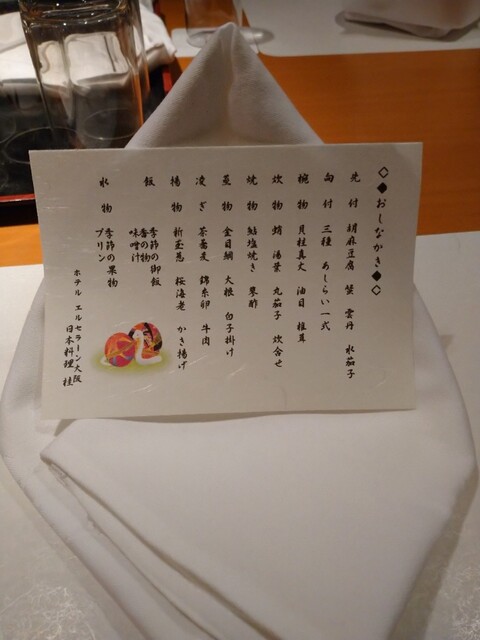 ◇◆おしながき◆◇
先付 胡麻豆腐 蟹 雲丹 水茄子
向付 三種 あしらい一式
椀物 貝柱真丈 油目 椎茸
炊物 蛸 湯葉 丸茄子 炊合せ
焼物 鮎塩焼き 蓼酢
蒸物 金目鯛 大根 白子掛け
凌ぎ 茶蕎麦 錦糸卵 牛肉
揚物 新玉葱 桜海老 かき揚げ
飯 季節の御飯
香の物
味噌汁
水物 季節の果物
プリン
ホテル エルセラーン大阪
日本料理 桂